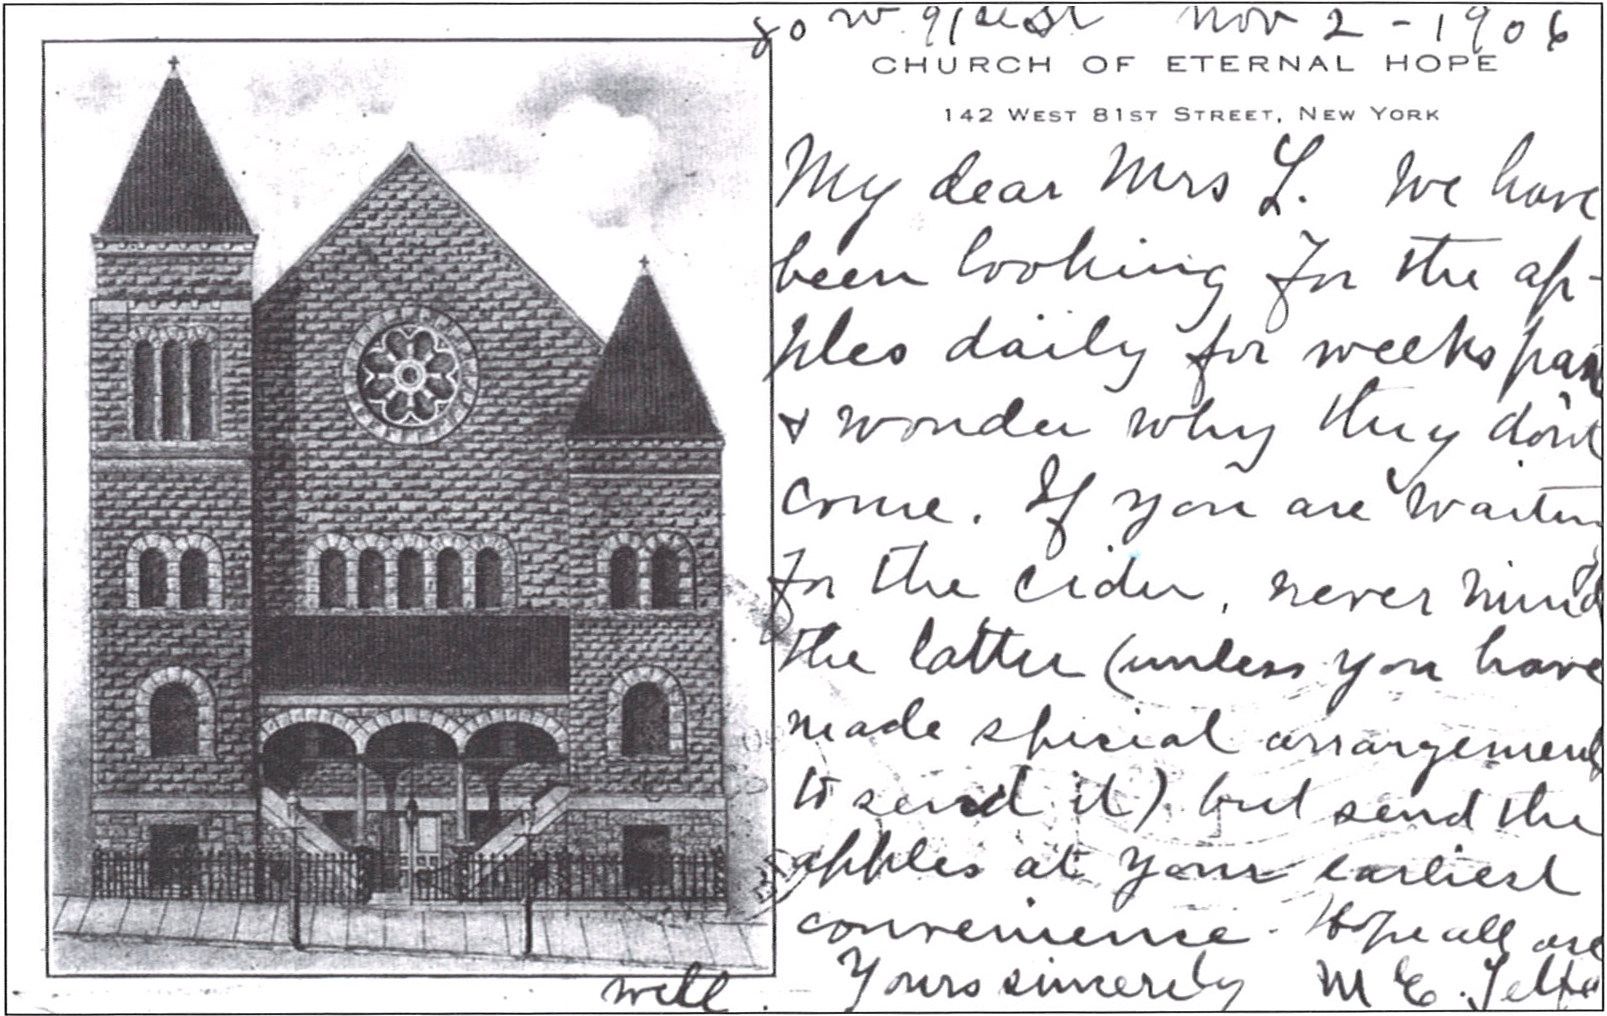 80 W. 91st St Nov 2 - 1906
CHURCH OF ETERNAL HOPE
142 WEST 81ST STREET, NEW YORK
My dear Mrs L. We have
been looking for the ap-
ples daily for weeks past
& wonder why they don't
come. If you are waiting
for the cider, never mind
the latter (unless you have
made special arrangement
to send it) but send the
apples at your earliest
convenience. Hope all are
well.
Yours sincerely M E.